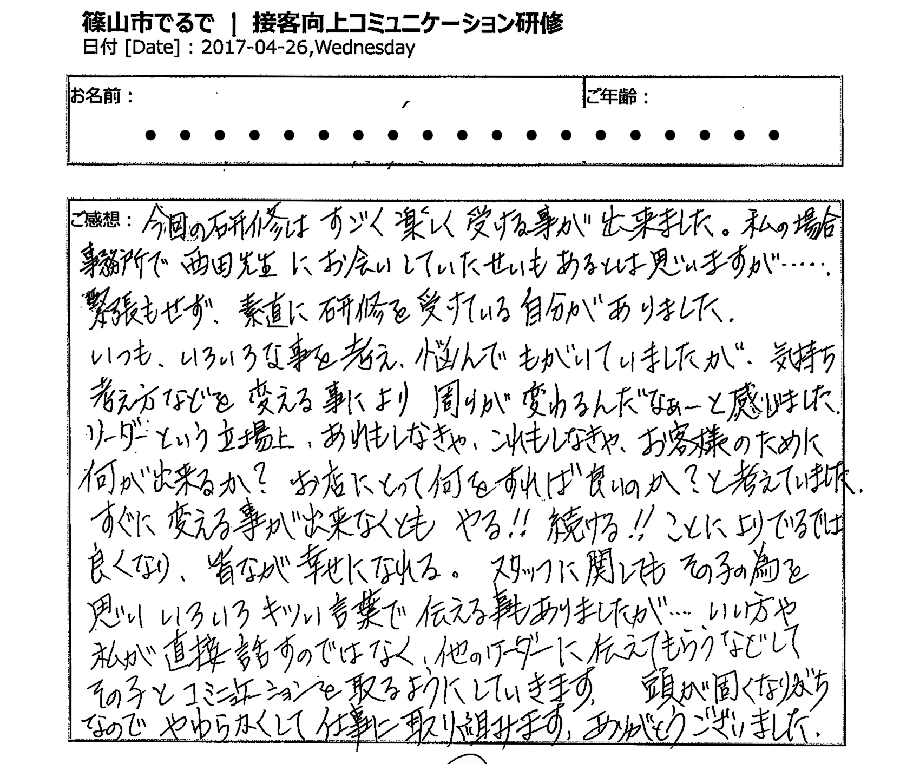 篠山市でるで | 接客向上コミュニケーション研修
日付 [Date] : 2017-04-26,Wednesday
お名前: ご年齢:
ご感想: 今回の研修は すごく楽しく受ける事が出来ました。私の場合
事務所で 西田先生 にお会いしていたせいもあるとは思いますが…….
緊張もせず、素直に研修を受けている自分がありました.
いつも、いろいろな事を考え、悩んで もがいていましたが、気持ち
考え方などを 変える事により 周りが変わるんだなぁーと感じました.
リーダーという立場上、あれもしなきゃ、これもしなきゃ、お客様のために
何が出来るか? お店にとって何をすれば良いのか?と考えていました.
すぐに変える事が出来なくとも やる!! 続ける!! ことによりでるでは
良くなり、皆なが幸せになれる。 スタッフに関しても その子の為を
思い いろいろキツい言葉で伝える事もありましたが…. いい方や
私が直接話すのではなく、他のリーダーに伝えてもらうなどして
その子とコミニュケーションを取るようにしていきます. 頭が固くなりがち
なので やわらかくして仕事に取り組みます. ありがとうございました.